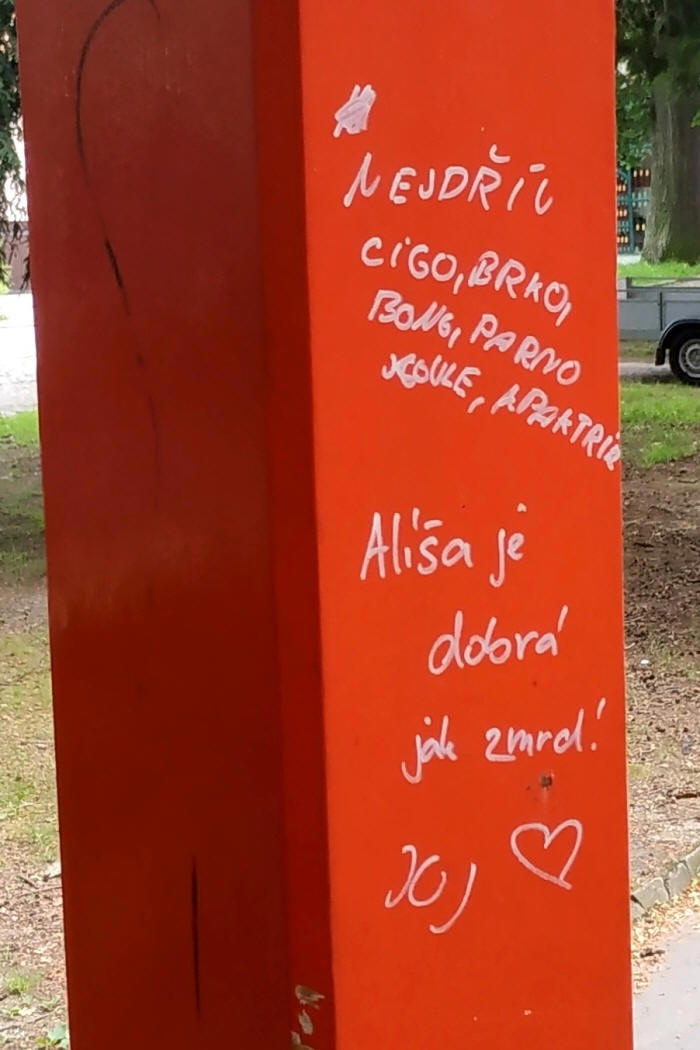 NEJDŘÍV
CIGO, BRKO,
BONG, PARNO
KOULE, APAKTRIK
Ališa je
dobrá
jak zmrd!
JOJ